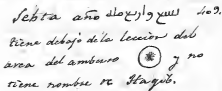 Sebta año سبع وأربع مائة 409.
tiene debajo de la leccion del
area del amburo y no
tiene nombre de Hagib.